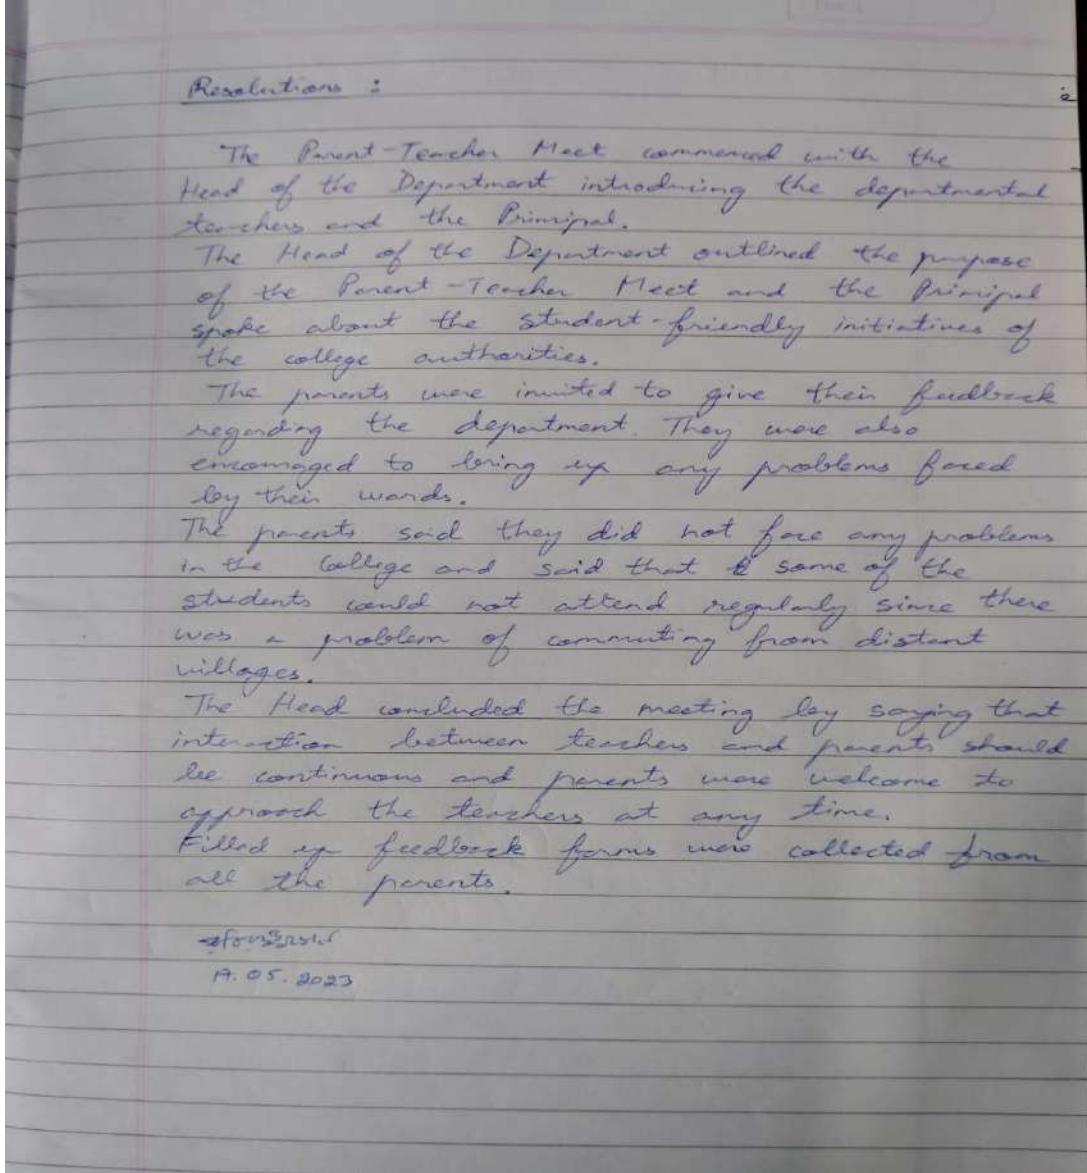 Resolutions :
The Parent-Teacher Meet commenced with the
Head of the Department introducing the departmental
teachers and the Principal.
The Head of the Department outlined the purpose
of the Parent-Teacher Meet and the Principal
spoke about the student-friendly initiatives of
the college authorities.
The parents were invited to give their feedback
regarding the department. They were also
encouraged to bring up any problems faced
by their wards.
The parents said they did not face any problems
in the College and said that some of the
students could not attend regularly since there
was a problem of commuting from distant
villages.
The Head concluded the meeting by saying that
interaction between teachers and parents should
be continuous and parents were welcome to
approach the teachers at any time.
Filled up feedback forms were collected from
all the parents.
17.05.2023